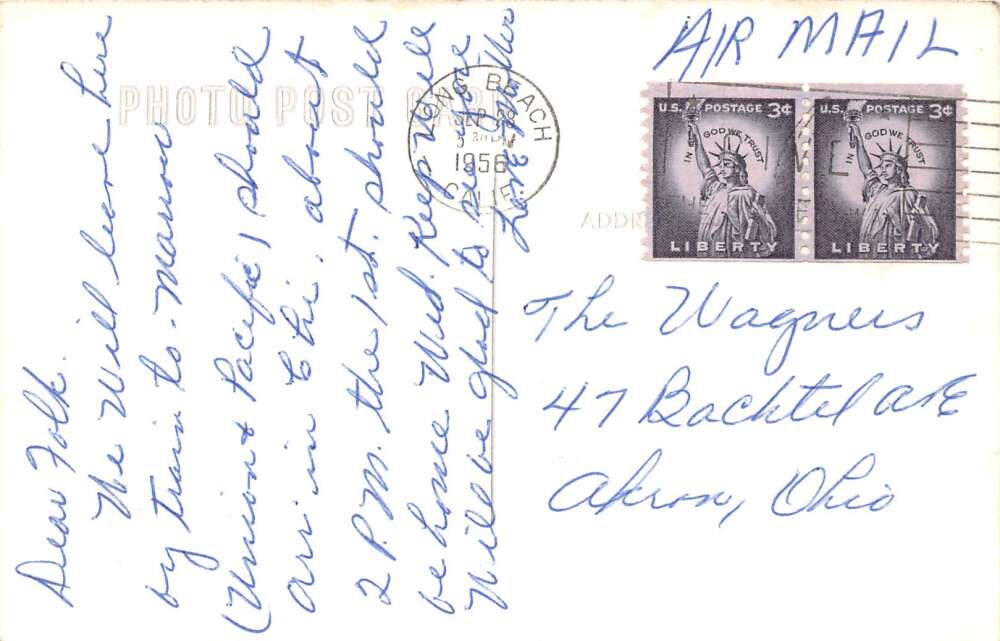 Dear Folk.
We Will leave here
by train to-morrow
(Union & Pacific) should
arri in Chi. about
2 P.M. the 1st. should
be home Wed. Keep Well
Will be glad to see you
Love
PHOTO POST CARD
LONG BEACH
SEP
1956
CALIF.
AIR MAIL
U.S. POSTAGE 3¢
IN GOD WE TRUST
LIBERTY
U.S. POSTAGE 3¢
IN GOD WE TRUST
LIBERTY
ADDR
The Wagners
47 Bachtel Ave
Akron, Ohio